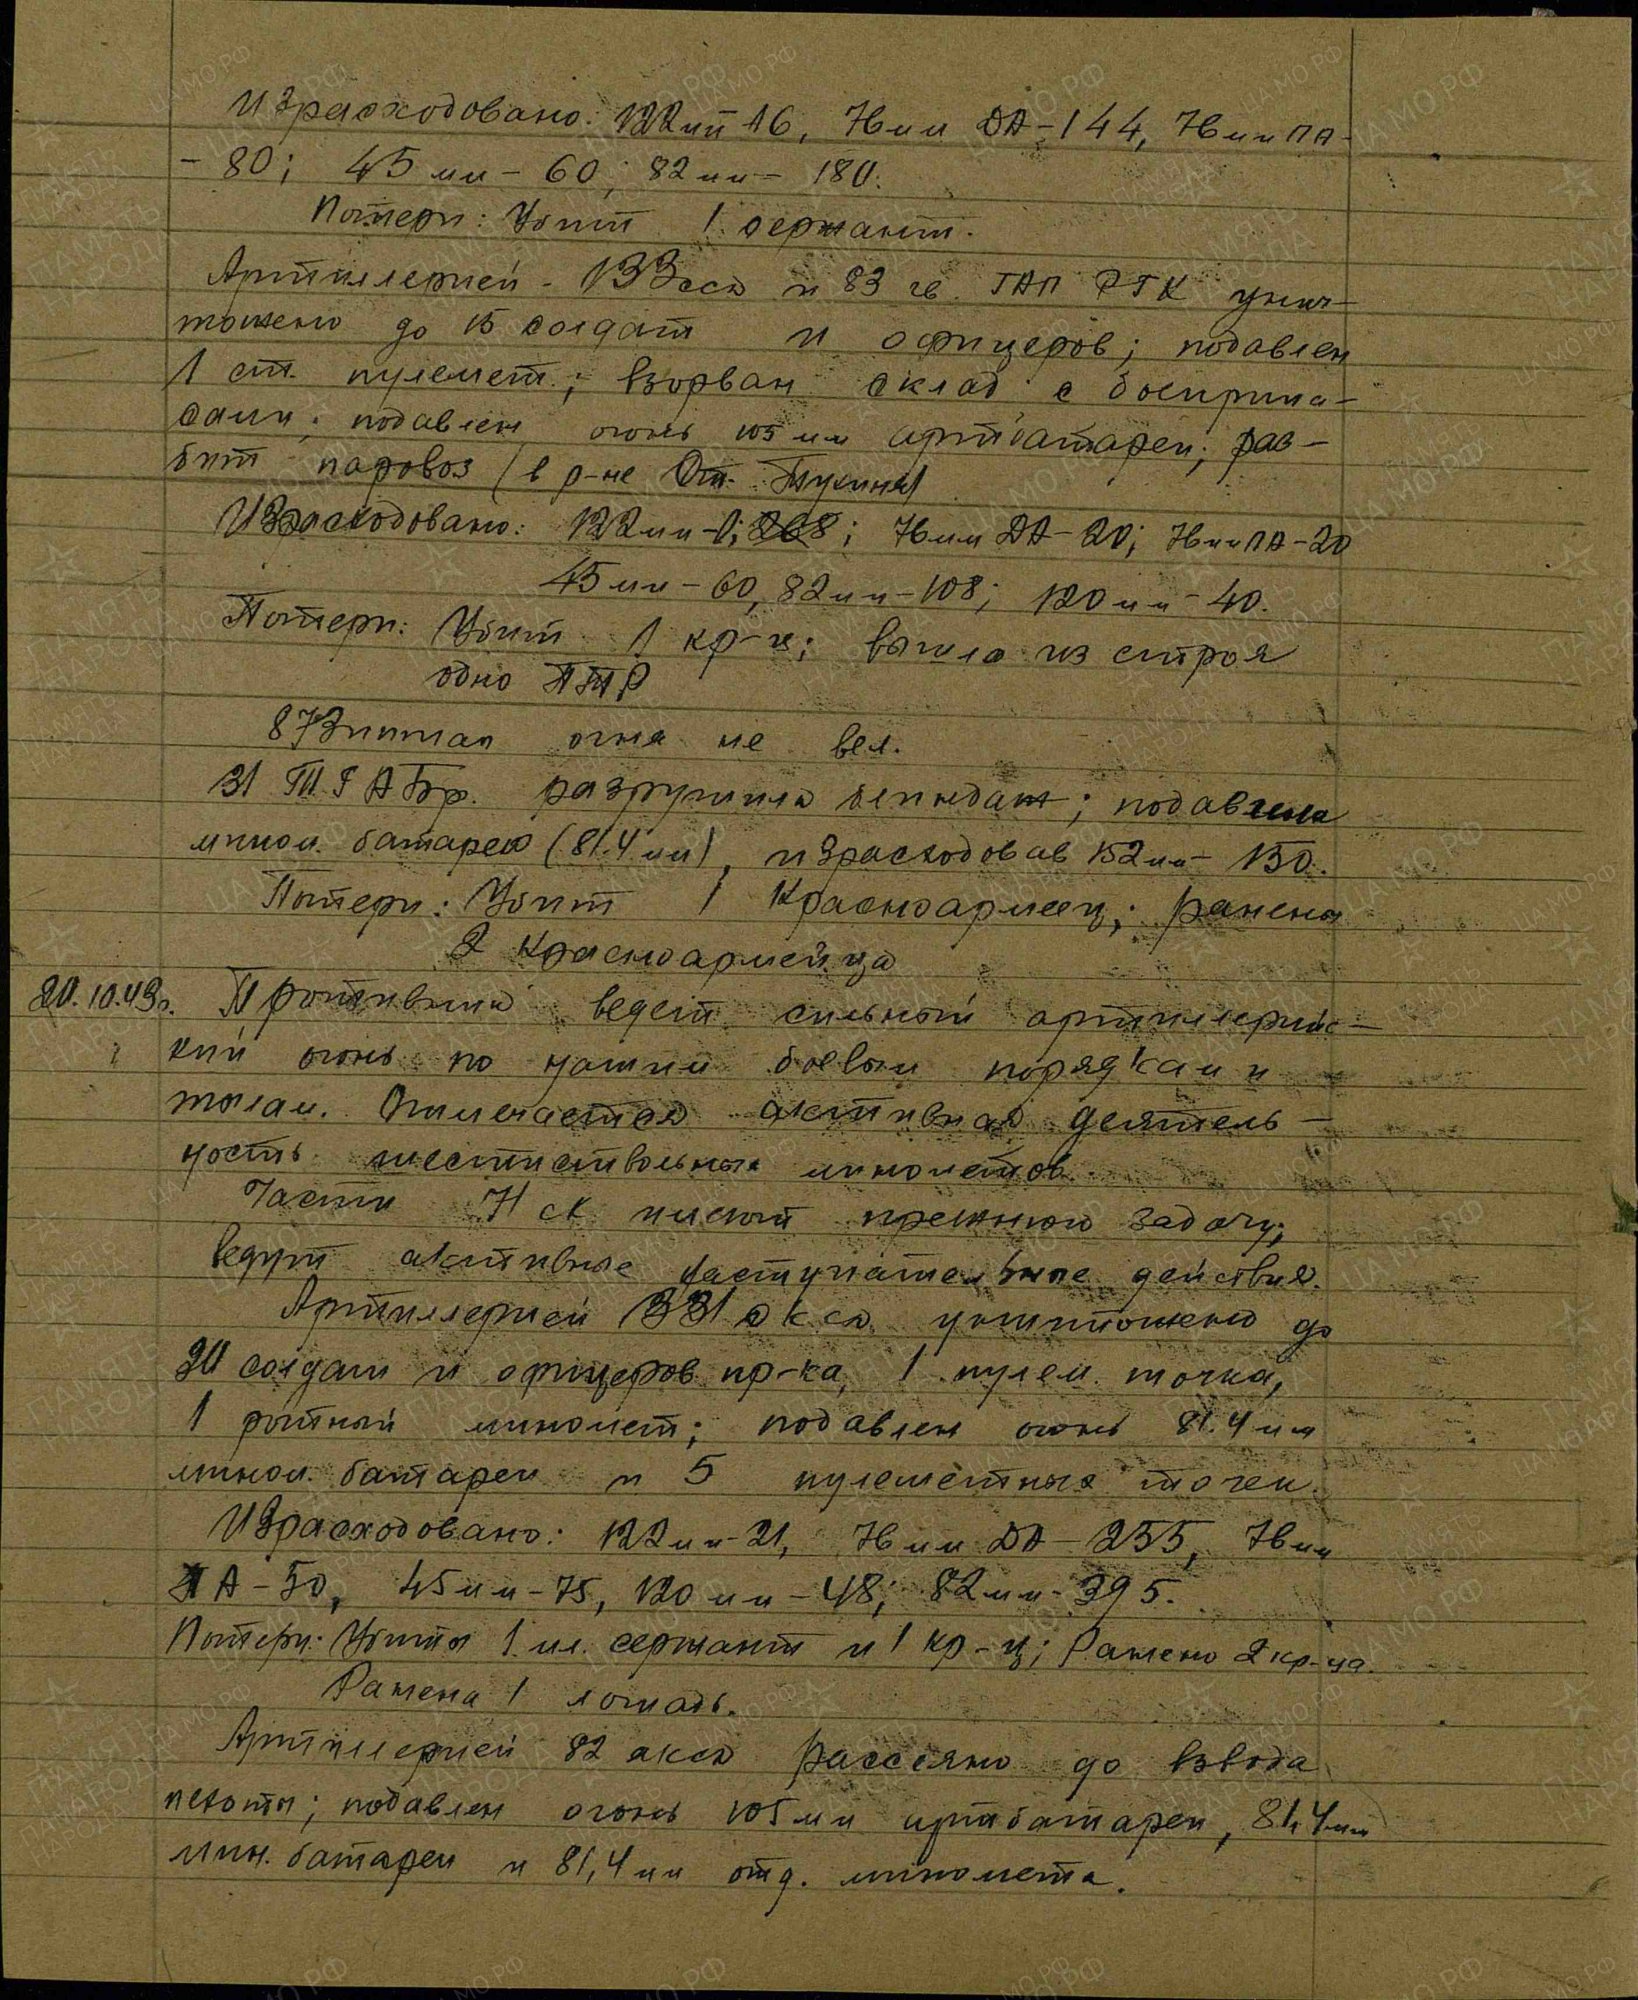 Израсходовано: 122мм 16, 76мм ДА-144, 76мм ПА-
- 80; 45 мм - 60; 82 мм - 180.
Потери: Убит 1 сержант.
Артиллерией - 133 сд и 83 гв. ГАП РГК унич-
тожено до 15 солдат и офицеров; подавлен
1 ст. пулемет; взорван склад с боеприпа-
сами; подавлен огонь 105 мм артбатареи; раз-
бит паровоз (в р-не Ст.
Израсходовано: 122мм - ; 76мм ДА - 20; 76мм ПА - 20
45 мм - 60, 82мм - 108; 120 мм - 40.
Потери: Убит 1 кр-ц; вышло из строя
одно ПТР
873 иптап огня не вел.
31 ТГАБр. разрушила блиндаж; подавила
мином. батарею (81.4 мм), израсходовав 152 мм - 150.
Потери: Убит 1 Красноармеец; ранены
2 красноармейца
20.10.43г. Противник ведет сильный артиллерийс-
кий огонь по нашим боевым порядкам и
тылам. Отмечается активная деятель-
ность шестиствольных минометов.
Части 71 ск имеют прежнюю задачу;
ведут активные наступательные действия.
Артиллерией 331 сксд уничтожено до
20 солдат и офицеров пр-ка, 1 пулем. точка,
1 ротный миномет; подавлен огонь 81.4 мм
мином. батареи и 5 пулеметных точек.
Израсходовано: 122 мм - 21, 76 мм ДА - 255, 76 мм
ПА - 50, 45 мм - 75, 120 мм - 48; 82 мм - 395.
Потери: Убиты 1 мл. сержант и 1 кр-ц; Ранено 2 кр-ца.
Ранена 1 лошадь.
Артиллерией 82 сксд рассеяно до взвода
пехоты; подавлен огонь 105 мм артбатареи, 81,4 мм
мин. батареи и 81,4 мм отд. миномета.